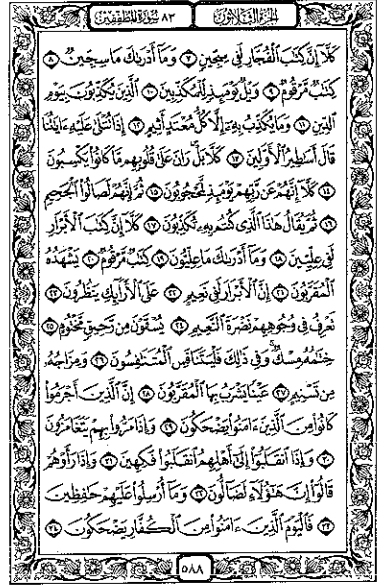 الجُزْءُ الثَّلَاثُونَ سُورَةُ المُطَفِّفِينَ ٨٣
كَلَّآ إِنَّ كِتَٰبَ ٱلْفُجَّارِ لَفِى سِجِّينٍ ٧ وَمَآ أَدْرَىٰكَ مَا سِجِّينٌ ٨
كِتَٰبٌ مَّرْقُومٌ ٩ وَيْلٌ يَوْمَئِذٍ لِّلْمُكَذِّبِينَ ١٠ ٱلَّذِينَ يُكَذِّبُونَ بِيَوْمِ
ٱلدِّينِ ١١ وَمَا يُكَذِّبُ بِهِۦٓ إِلَّا كُلُّ مُعْتَدٍ أَثِيمٍ ١٢ إِذَا تُتْلَىٰ عَلَيْهِ ءَايَٰتُنَا
قَالَ أَسَٰطِيرُ ٱلْأَوَّلِينَ ١٣ كَلَّا بَلْ رَانَ عَلَىٰ قُلُوبِهِم مَّا كَانُوا۟ يَكْسِبُونَ
١٤ كَلَّآ إِنَّهُمْ عَن رَّبِّهِمْ يَوْمَئِذٍ لَّمَحْجُوبُونَ ١٥ ثُمَّ إِنَّهُمْ لَصَالُوا۟ ٱلْجَحِيمِ
١٦ ثُمَّ يُقَالُ هَٰذَا ٱلَّذِى كُنتُم بِهِۦ تُكَذِّبُونَ ١٧ كَلَّآ إِنَّ كِتَٰبَ ٱلْأَبْرَارِ
لَفِى عِلِّيِّينَ ١٨ وَمَآ أَدْرَىٰكَ مَا عِلِّيُّونَ ١٩ كِتَٰبٌ مَّرْقُومٌ ٢٠ يَشْهَدُهُ
ٱلْمُقَرَّبُونَ ٢١ إِنَّ ٱلْأَبْرَارَ لَفِى نَعِيمٍ ٢٢ عَلَى ٱلْأَرَآئِكِ يَنظُرُونَ ٢٣
تَعْرِفُ فِى وُجُوهِهِمْ نَضْرَةَ ٱلنَّعِيمِ ٢٤ يُسْقَوْنَ مِن رَّحِيقٍ مَّخْتُومٍ ٢٥
خِتَٰمُهُۥ مِسْكٌ ۚ وَفِى ذَٰلِكَ فَلْيَتَنَافَسِ ٱلْمُتَنَٰفِسُونَ ٢٦ وَمِزَاجُهُۥ
مِن تَسْنِيمٍ ٢٧ عَيْنًا يَشْرَبُ بِهَا ٱلْمُقَرَّبُونَ ٢٨ إِنَّ ٱلَّذِينَ أَجْرَمُوا۟
كَانُوا۟ مِنَ ٱلَّذِينَ ءَامَنُوا۟ يَضْحَكُونَ ٢٩ وَإِذَا مَرُّوا۟ بِهِمْ يَتَغَامَزُونَ
٣٠ وَإِذَا ٱنقَلَبُوٓا۟ إِلَىٰٓ أَهْلِهِمُ ٱنقَلَبُوا۟ فَكِهِينَ ٣١ وَإِذَا رَأَوْهُمْ
قَالُوٓا۟ إِنَّ هَٰٓؤُلَآءِ لَضَآلُّونَ ٣٢ وَمَآ أُرْسِلُوا۟ عَلَيْهِمْ حَٰفِظِينَ
٣٣ فَٱلْيَوْمَ ٱلَّذِينَ ءَامَنُوا۟ مِنَ ٱلْكُفَّارِ يَضْحَكُونَ ٣٤
٥٨٨